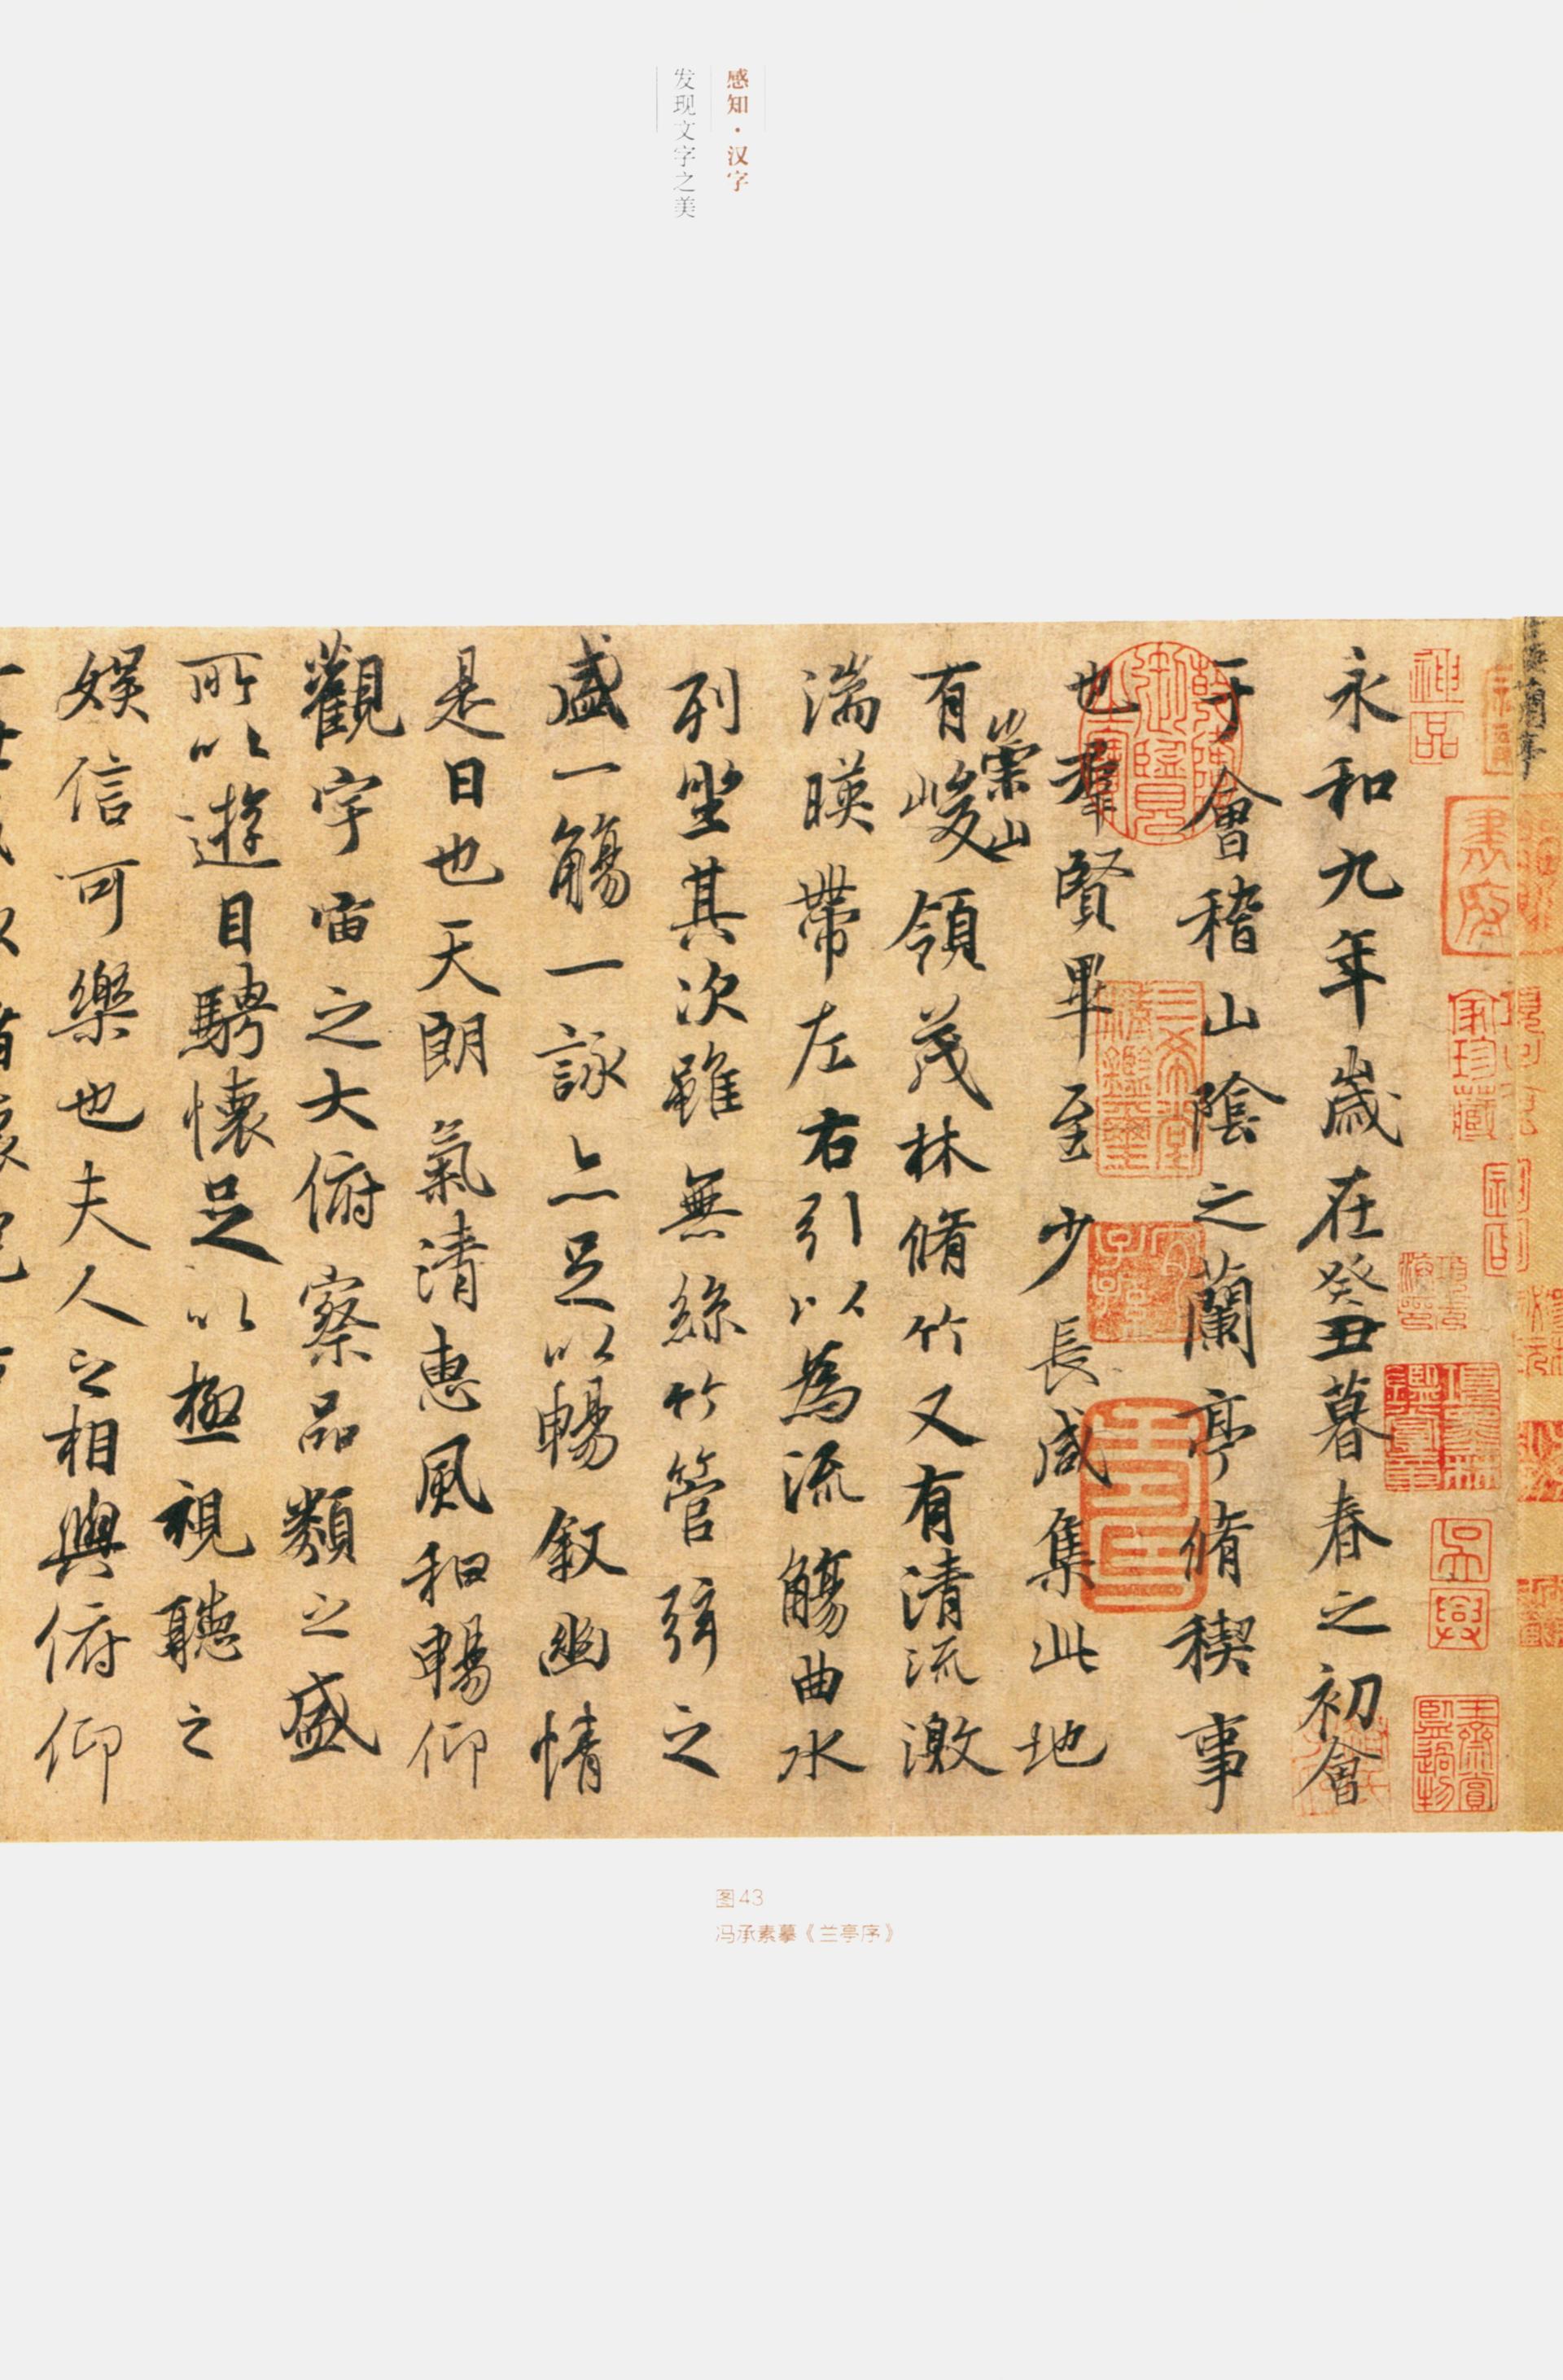 感知·汉字
发现文字之美
永和九年歲在癸丑暮春之初會
于會稽山陰之蘭亭脩稧事
也羣賢畢至少長咸集此地
崇山
有峻領茂林脩竹又有清流激
湍暎帶左右引以為流觴曲水
列坐其次雖無絲竹管弦之
盛一觴一詠亦足以暢叙幽情
是日也天朗氣清惠風和暢仰
觀宇宙之大俯察品類之盛
所以遊目騁懷足以極視聽之
娛信可樂也夫人之相與俯仰
图43
冯承素摹《兰亭序》
神品
書府
家珍藏
吳興